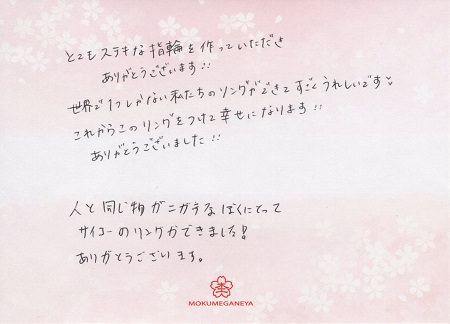 とてもステキな指輪を作っていただき
ありがとうございます!!
世界で1つしかない私たちのリングができてすごくうれしいです♡
これからこのリングをつけて幸せになります!!
ありがとうございました!!
人と同じ物がニガテなぼくにとって
サイコーのリングができました!
ありがとうございます。
MOKUMEGANEYA